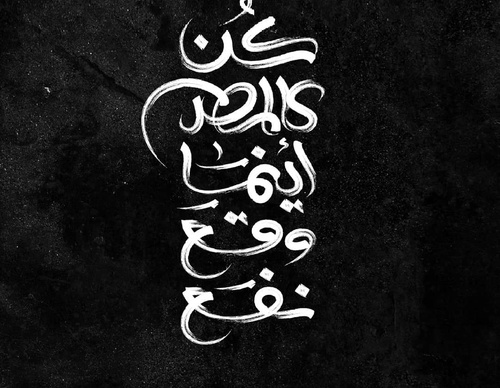 كُن
كالمطر
أينما
وقع
نفع